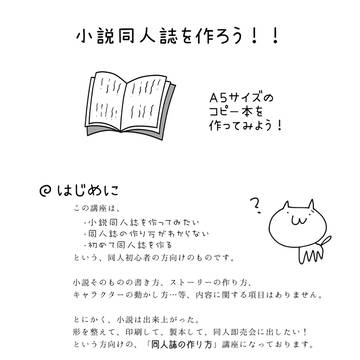 小説同人誌を作ろう！！
A5サイズの
コピー本を
作ってみよう！
@はじめに
この講座は、
・小説同人誌を作ってみたい
・同人誌の作り方がわからない
・初めて同人誌を作る
という、同人初心者の方向けのものです。
小説そのものの書き方、ストーリーの作り方、
キャラクターの動かし方…等、内容に関する項目はありません。
とにかく、小説は出来上がった。
形を整えて、印刷して、製本して、同人即売会に出したい！
という方向けの、「同人誌の作り方」講座になっております。
？